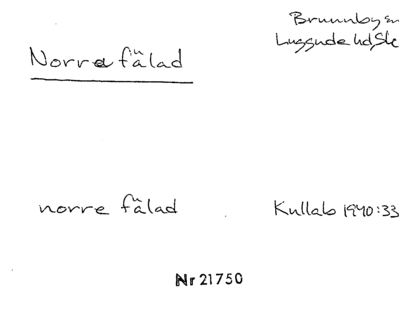 Brunnby sn
Luggude hd, Sk
Norra fälad
norre fälad
Kullab 1940:33
Nr 21750